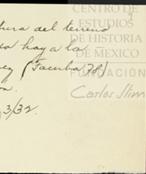 tura del terreno
haya la
(Tumba 70)
3/32.
CENTRO DE
ESTUDIOS
DE HISTORIA
DE MÉXICO
FUNDACIÓN
Carlos Slim